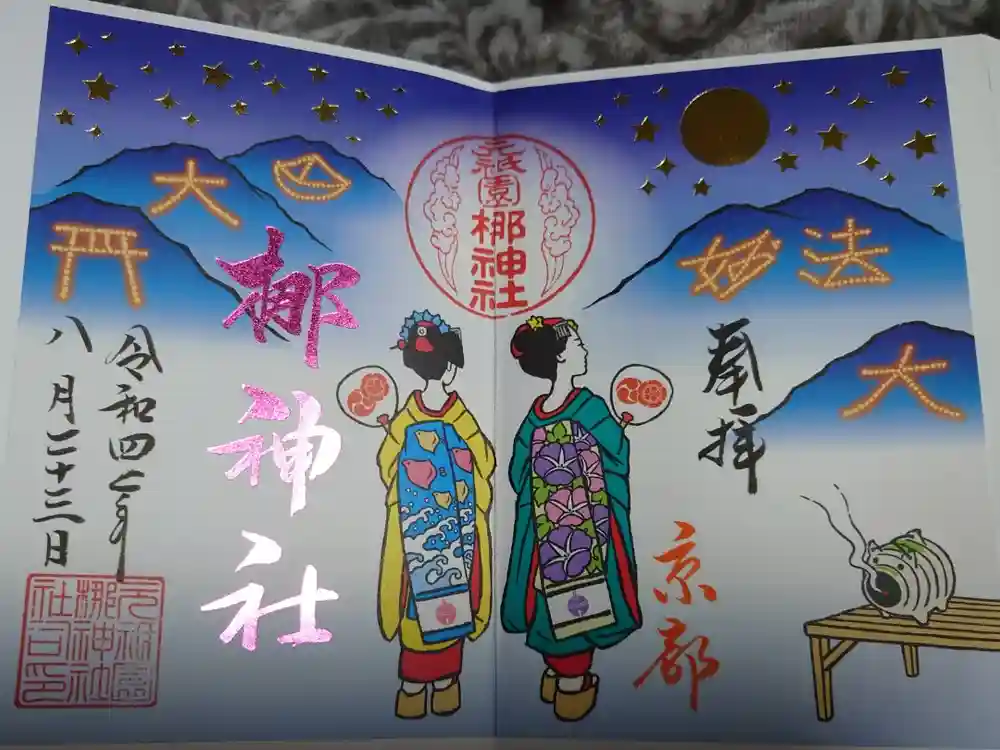 妙法
大
奉拝
京都
元祇園
梛神社
大
梛神社
令和四年
八月二十三日
元祇園
梛神社